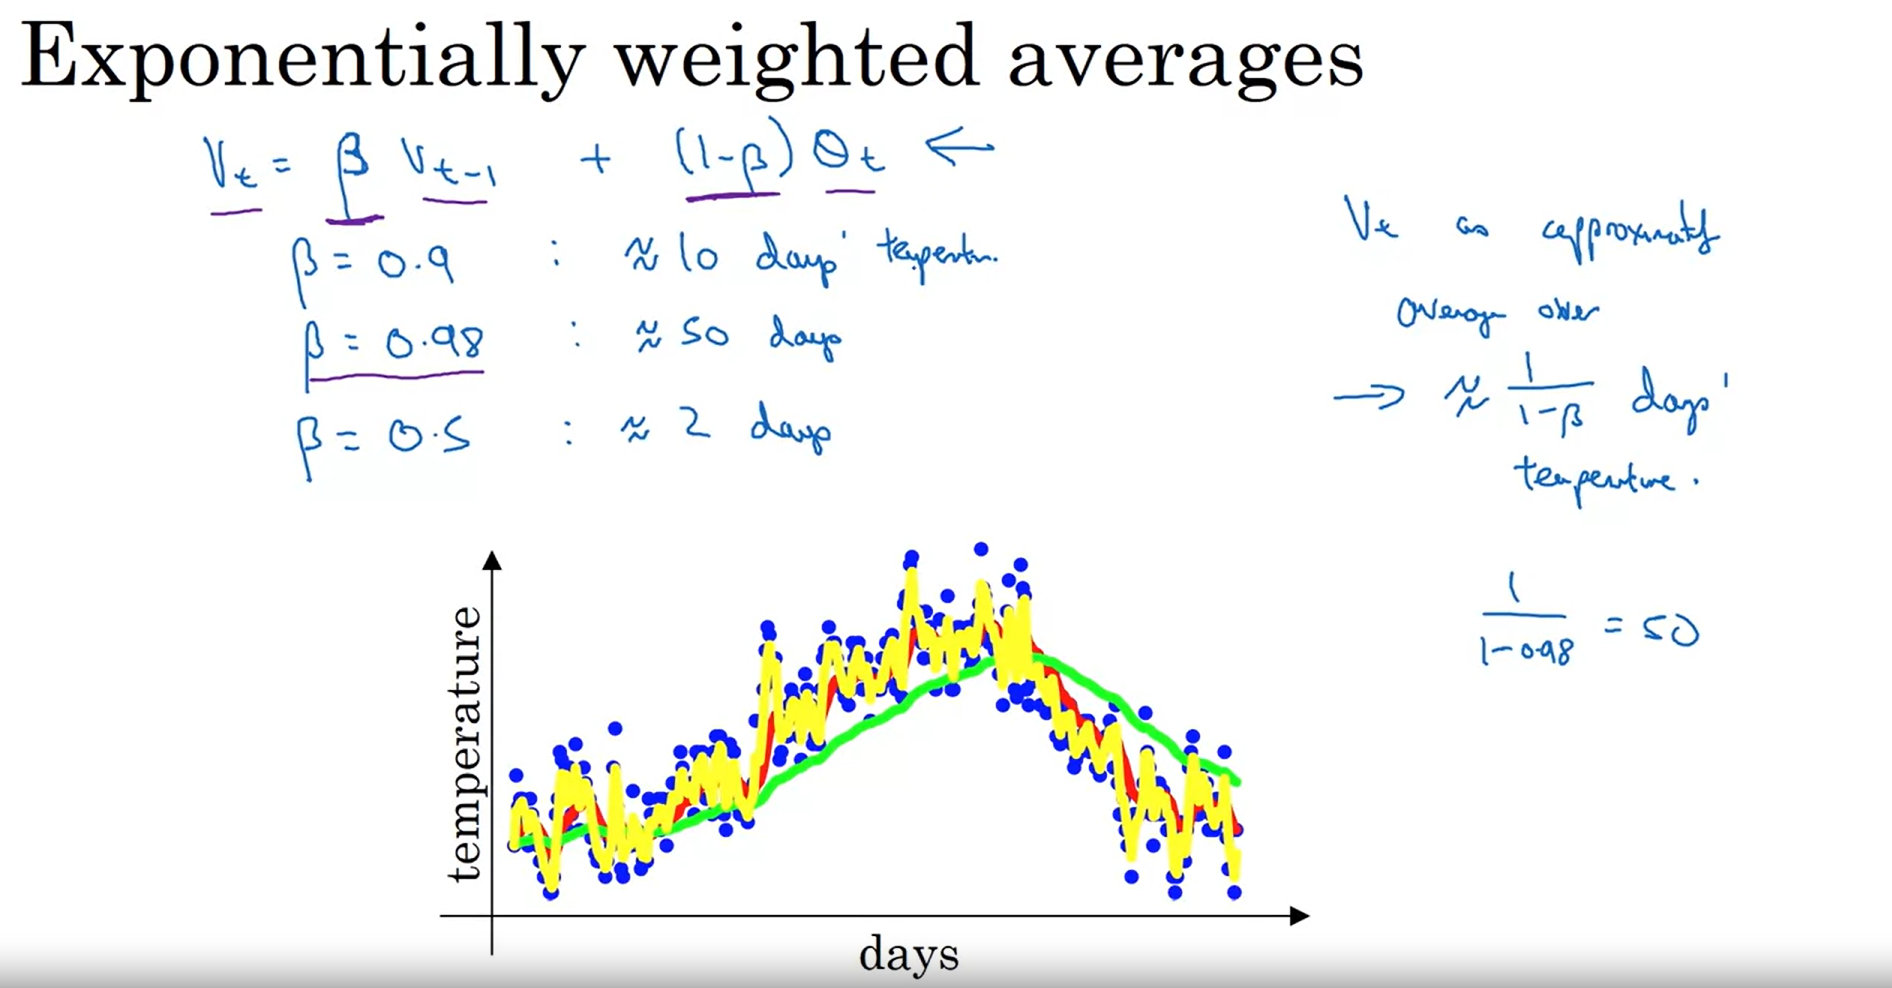 Exponentially weighted averages
Vt = β Vt-1 + (1-β) θt ←
β = 0.9 : ≈ 10 days'
β = 0.98 : ≈ 50 days
β = 0.5 : ≈ 2 days
Vt as
average over
→ ≈ 1/(1-β) days'
temperature.
1/(1-0.98) = 50
temperature
days